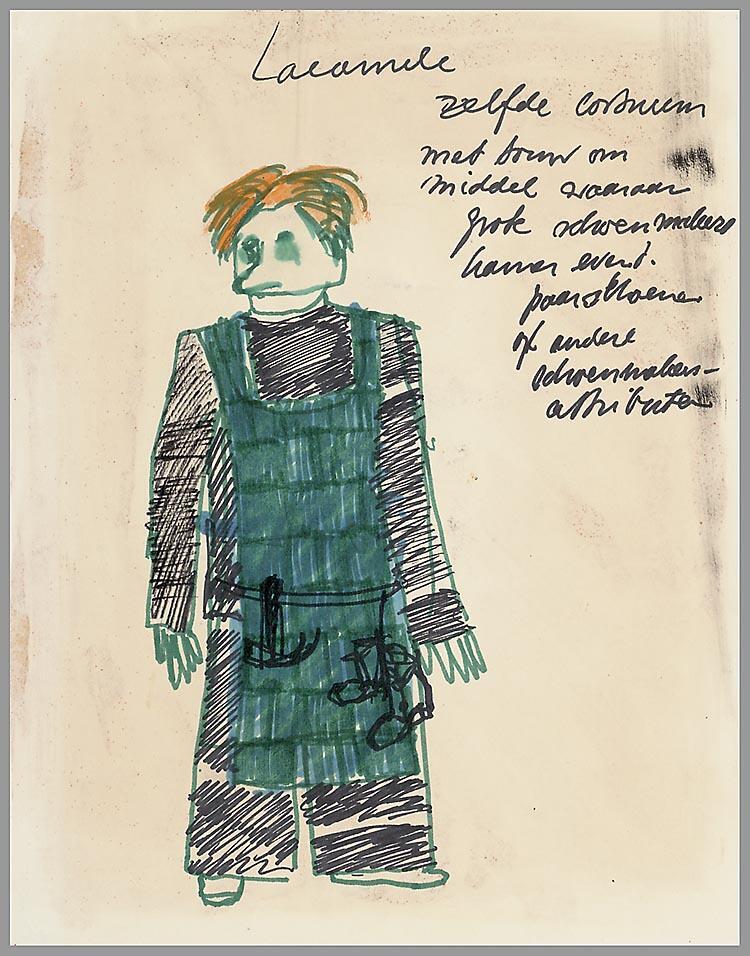 zelfde costuum
met touw om
middel waaraan
grote schoenmakers
hamer event.
paar schoenen
of andere
schoenmakers-
attributen